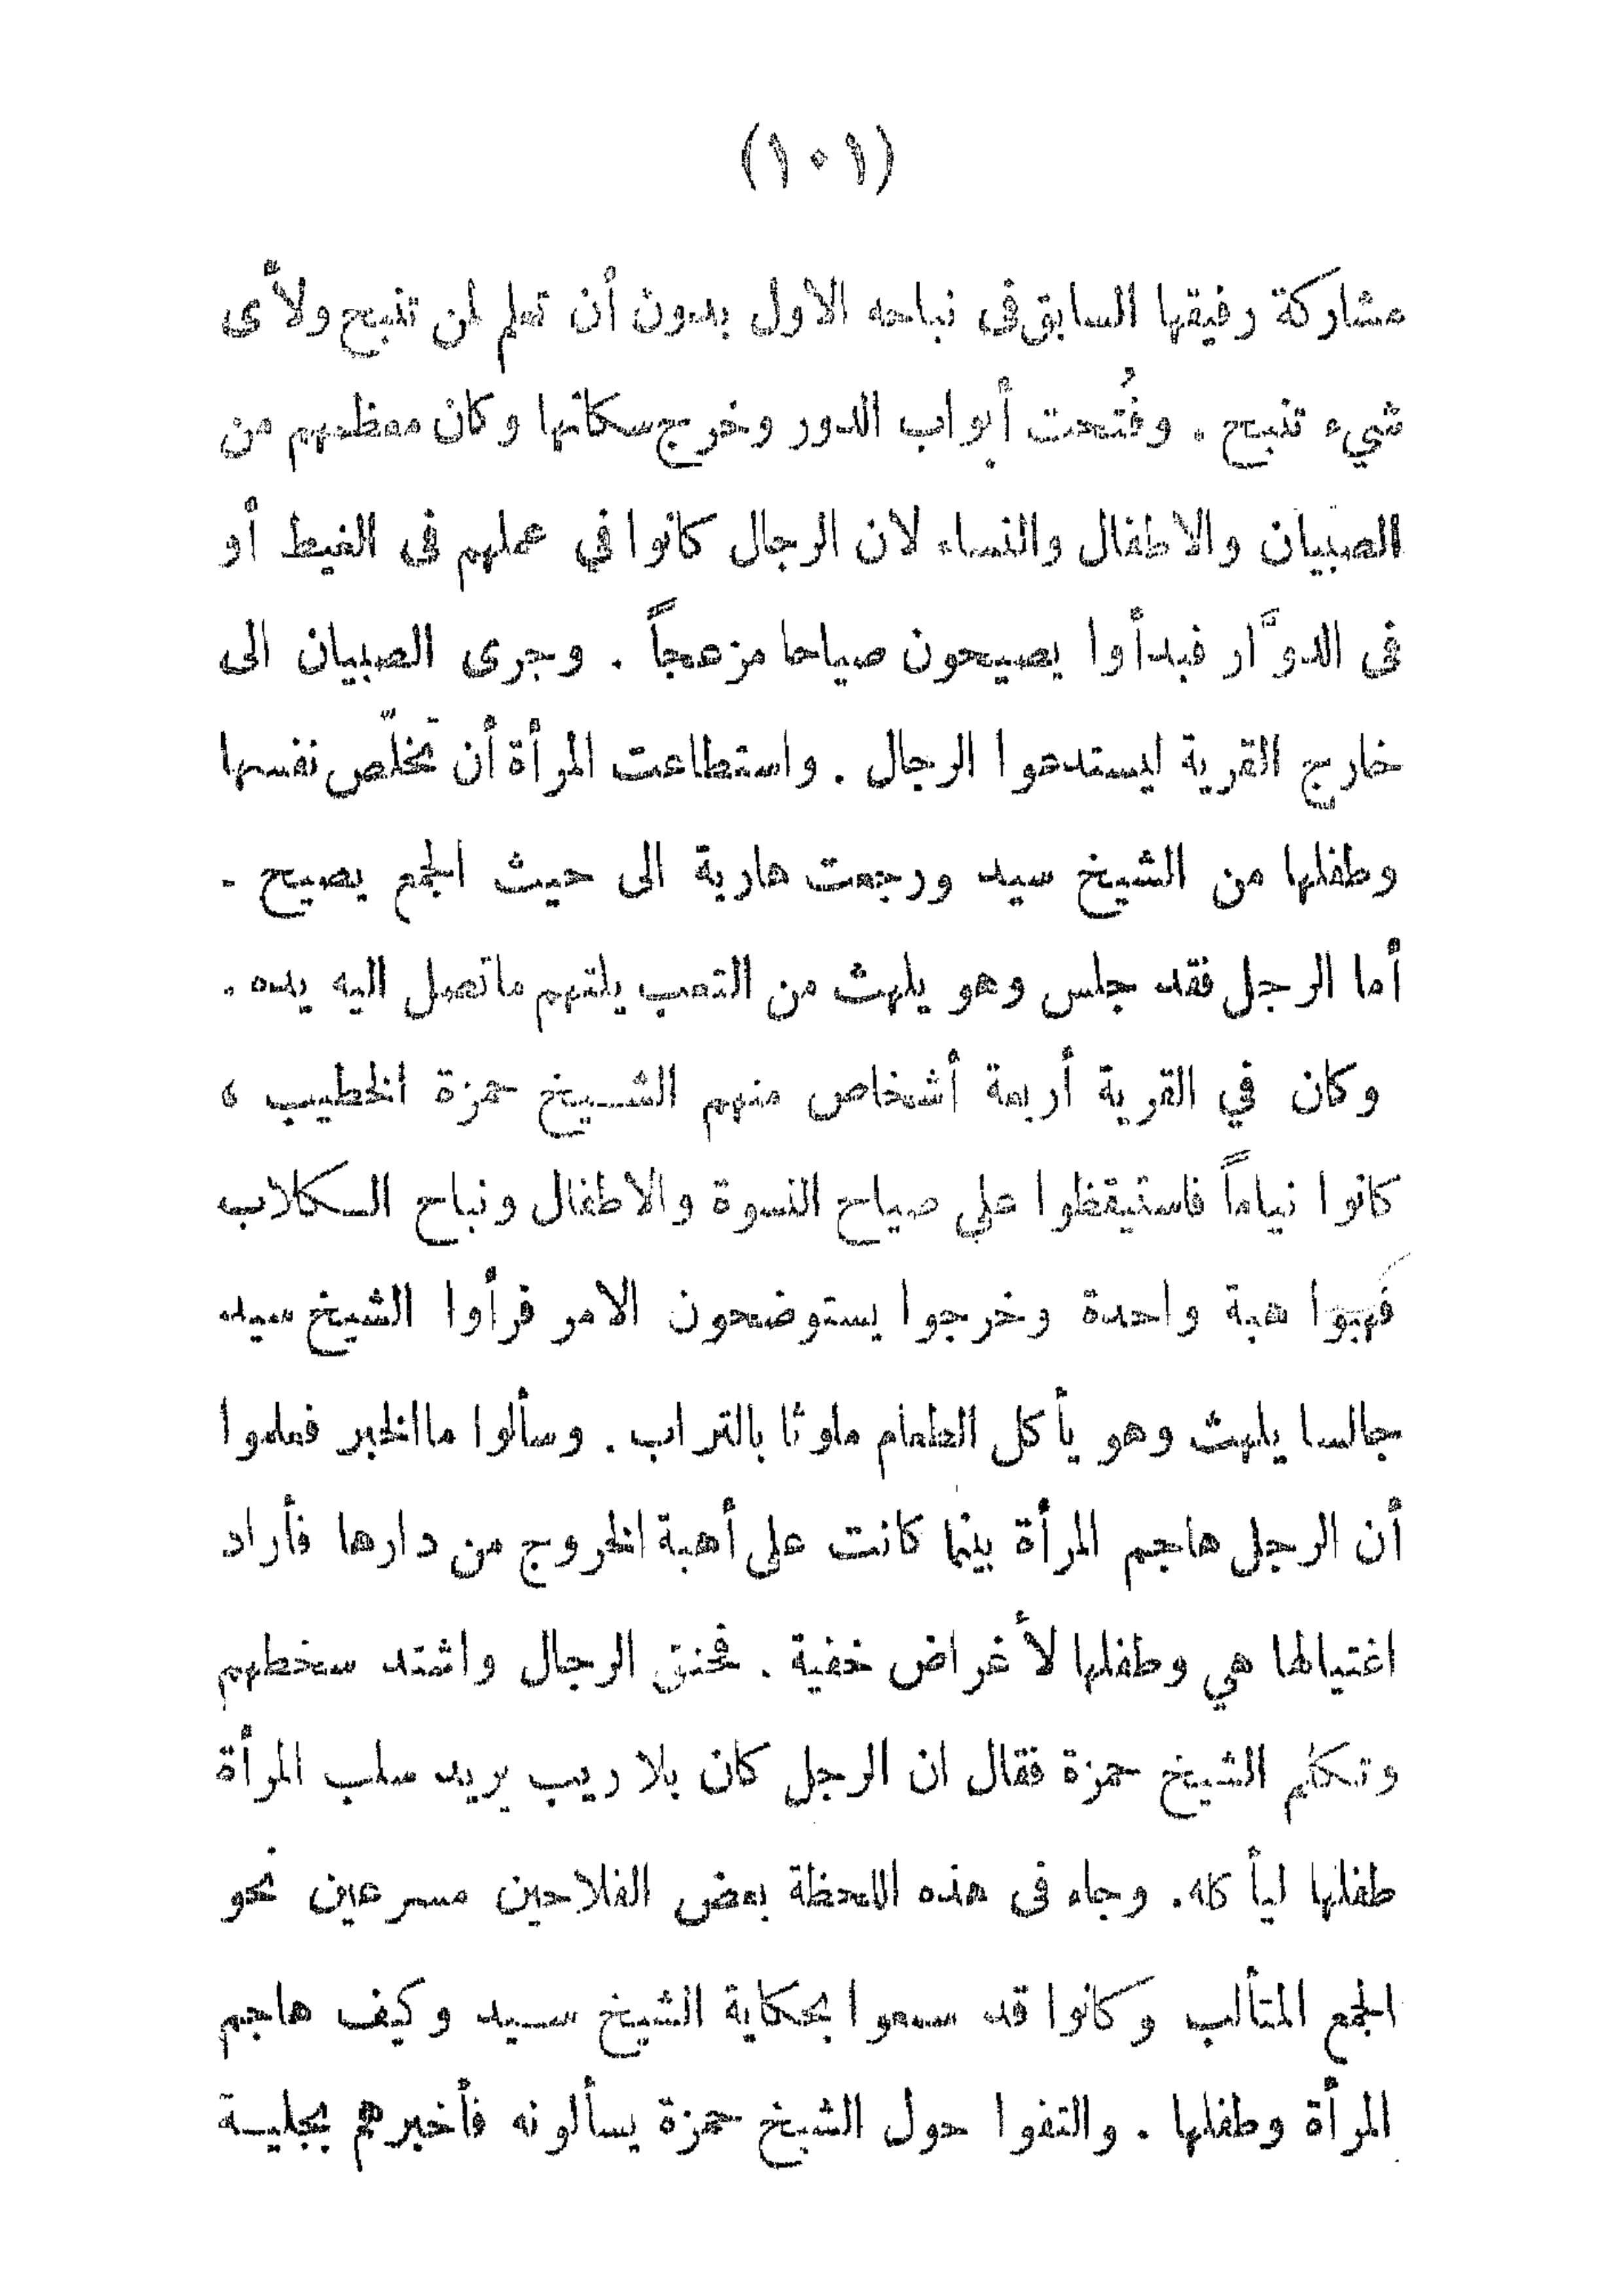 (١٠١)
مشاركة رفيقها السابق فى نباحه الاول بدون أن تعلم لمن تنبح ولأى
شيء تنبح . وفُتحت أبواب الدور وخرج سكانها وكان معظمهم من
الصبيان والاطفال والنساء لان الرجال كانوا في عملهم فى الغيط أو
فى الدوَّار فبدأوا يصيحون صياحا مزعجاً . وجرى الصبيان الى
خارج القرية ليستدعوا الرجال . واستطاعت المرأة أن تخلّص نفسها
وطفلها من الشيخ سيد ورجعت هاربة الى حيث الجمع يصيح .
أما الرجل فقد جلس وهو يلهث من التعب يلتهم ماتصل اليه يده .
وكان في القرية أربعة أشخاص منهم الشيخ حمزة الخطيب ،
كانوا نياماً فاستيقظوا على صياح النسوة والاطفال ونباح الكلاب
فهبوا هبة واحدة وخرجوا يستوضحون الامر فرأوا الشيخ سيد
جالسا يلهث وهو يأكل الطعام ملوثا بالتراب . وسألوا ماالخبر فعلموا
أن الرجل هاجم المرأة بينما كانت على أهبة الخروج من دارها فأراد
اغتيالها هي وطفلها لأغراض خفية . فحنق الرجال واشتد سخطهم
وتكلم الشيخ حمزة فقال ان الرجل كان بلا ريب يريد سلب المرأة
طفلها ليأكله . وجاء فى هذه اللحظة بعض الفلاحين مسرعين نحو
الجمع المتألب وكانوا قد سمعوا بحكاية الشيخ سيد وكيف هاجم
المرأة وطفلها . والتفوا حول الشيخ حمزة يسألونه فأخبرهم بجلية